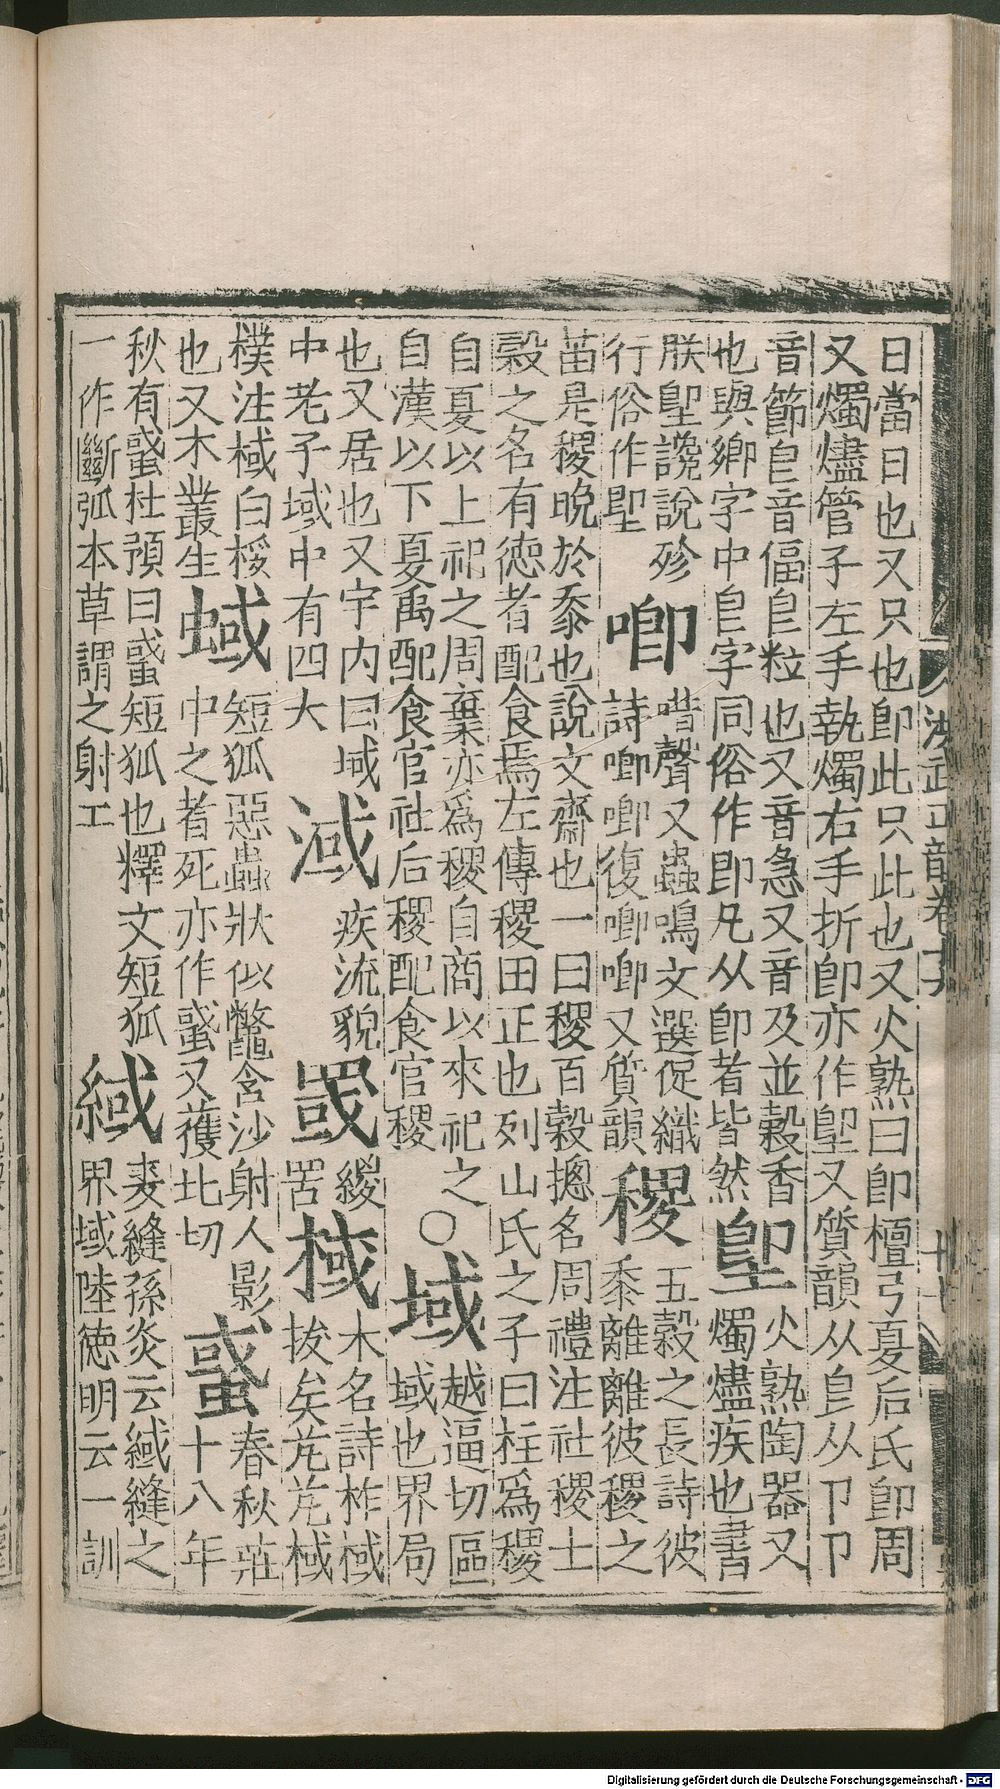 日當日也又只也卽此只此也又火熟曰卽檀弓夏后氏卽周
又燭燼管子左手執燭右手折卽亦作堲又質韻从皀从卩卩
音節皀音偪皀粒也又音急又音及並穀香
也與鄉字中皀字同俗作即凡从卽者皆然
堲
火熟陶器又
燭燼疾也書
朕堲讒說殄
行俗作聖
喞
喈聲又蟲鳴文選促織
詩喞喞復喞喞又質韻
稷
五穀之長詩彼
黍離離彼稷之
苗是稷晚於黍也說文齋也一曰稷百穀摠名周禮注社稷土
穀之名有德者配食焉左傳稷田正也列山氏之子曰柱爲稷
自夏以上祀之周棄亦爲稷自商以來祀之○
自漢以下夏禹配食官社后稷配食官稷
域
越逼切區
域也界局
也又居也又宇内曰域
中老子域中有四大
淢
疾流貌
罭
緵
罟
棫
木名詩柞棫
拔矣芃芃棫
樸注棫白桵
也又木叢生
蜮
短狐惡蟲狀似鼈含沙射人影
中之者死亦作䗲又獲北切
䗲
春秋莊
十八年
秋有䗲杜預曰䗲短狐也釋文短狐
一作斷弧本草謂之射工
緎
裘縫孫炎云緎縫之
界域陸德明云一訓
洪武正韻卷十六
Digitalisierung gefördert durch die Deutsche Forschungsgemeinschaft - DFG